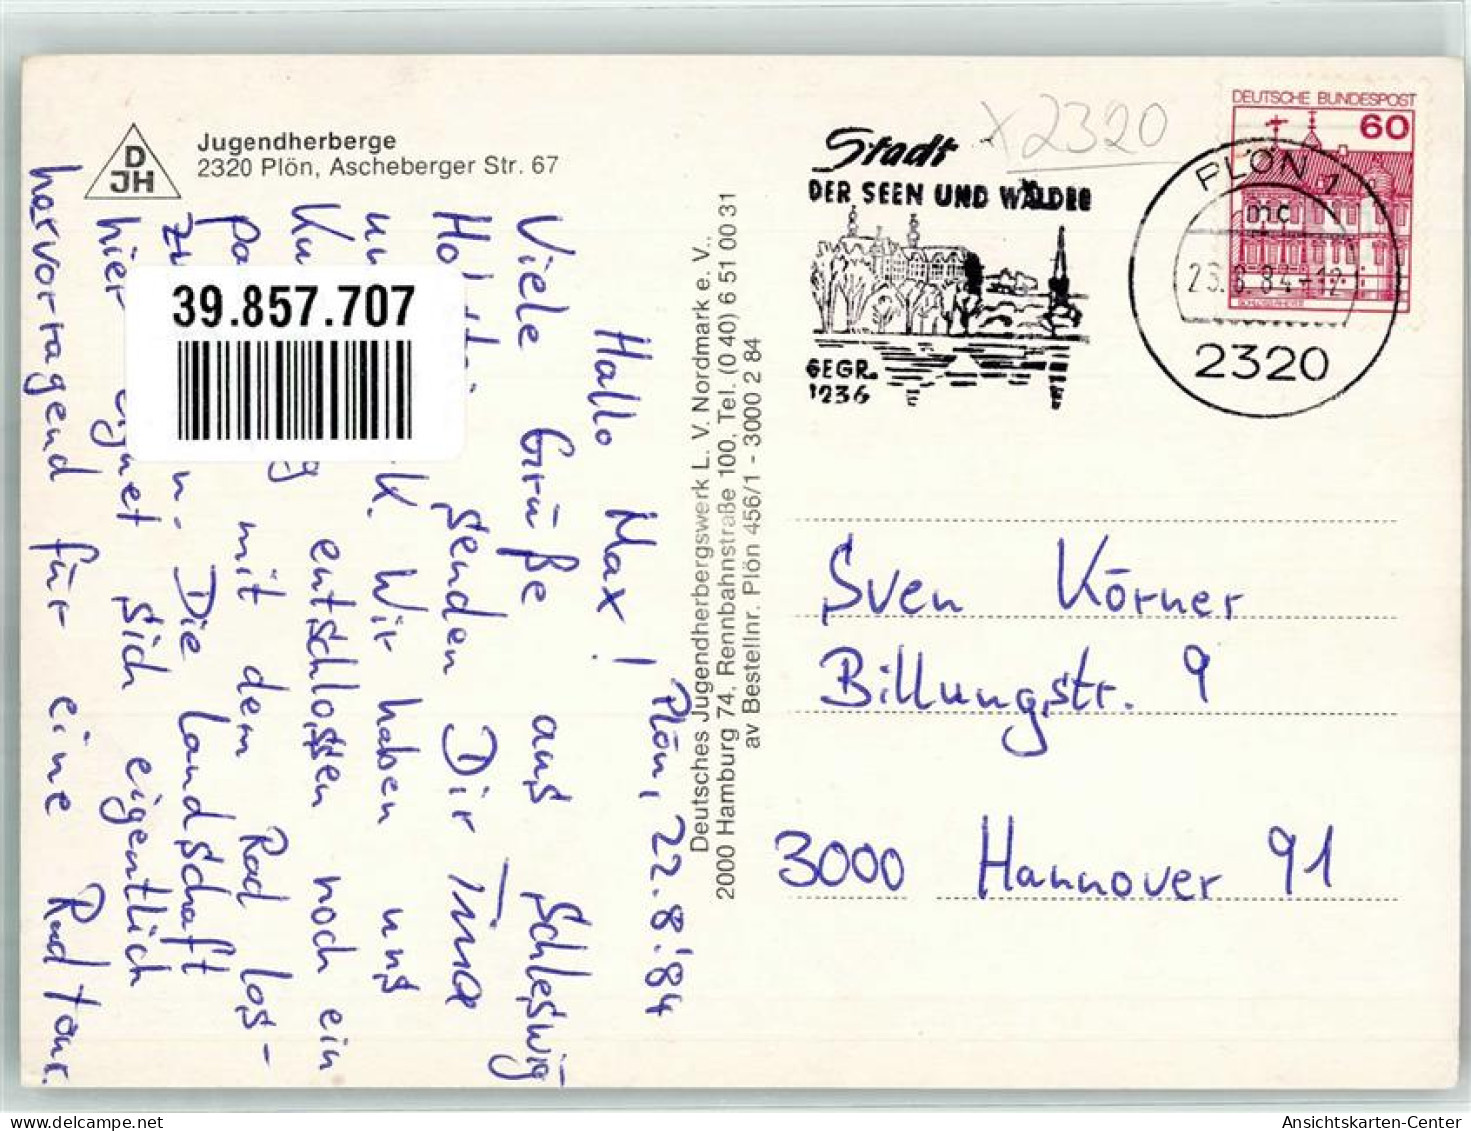 D
JH
Jugendherberge
2320 Plön, Ascheberger Str. 67
Plön, 22.8.'84
Hallo Max!
Viele Grüße aus Schleswig-
senden Dir Tina
K. Wir haben uns
entschlossen noch ein
mit dem Rad los-
Die Landschaft
hier eignet sich eigentlich
hervorragend für eine Radtour.
39.857.707
Deutsches Jugendherbergswerk L. V. Nordmark e. V.,
2000 Hamburg 74, Rennbahnstraße 100, Tel. (0 40) 6 51 00 31
av Bestellnr. Plön 456/1 - 3000 2 84
Stadt
DER SEEN UND WÄLDER
GEGR.
1236
x2320
DEUTSCHE BUNDESPOST
60
PLÖN 1
mc
84-12
2320
Sven Körner
Billungstr. 9
3000 Hannover 91
Ansichtskarten-Center